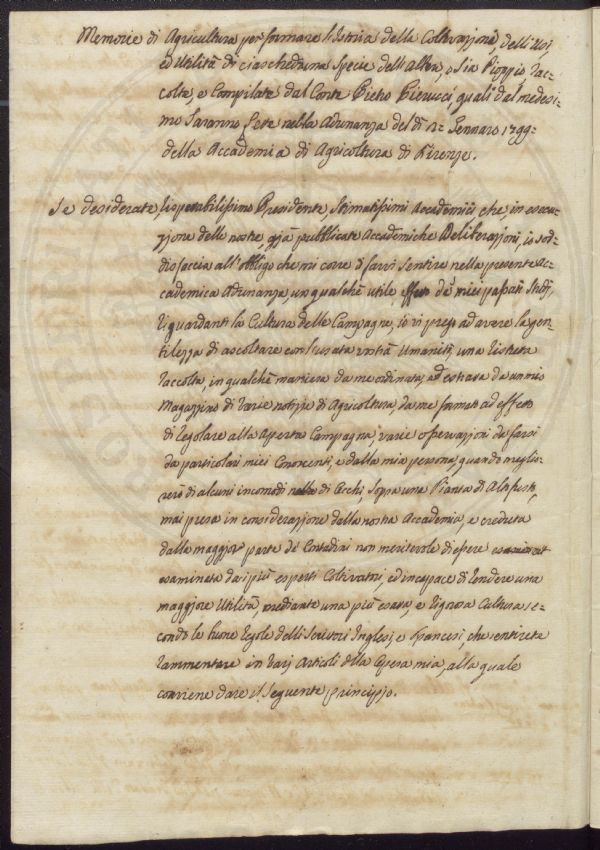 Memorie di Agricultura per formare l'Istoria della Coltivazione, delli Usi,
ed Utilità di ciascheduna Specie dell'Albero, o sia Pioppo, rac-
colte, e Compilate dal Conte Pietro Pierucci quali dal medesi-
mo Saranno Lette nella Adunanza del dì 2 Gennaro 1799
della Accademia di Agricoltura di Firenze.
Se desiderate Rispettabilissimo Presidente Stimatissimi Accademici che in esecu-
zione delle nostre già pubblicate Accademiche Deliberazioni, io sod-
disfaccia all'obbligo che mi corre di farvi sentire nella presente Ac-
cademica Adunanza, un qualche utile effetto de miei passati Studj,
riguardanti la Cultura delle Campagne, io vi prego ad avere la gen-
tilezza di ascoltare con l'usata vostra Umanità, una ristretta
raccolta, in qualche maniera da me ordinata, ed estratta da un mio
Magazzino di varie notizie di Agricoltura, da me formato ad effetto
di regolare alla Aperta Campagna, varie osservazioni da farsi
da particolari miei Conoscenti, e dalla mia persona, quando miglio-
rerò di alcuni incomodi di Occhi, Sopra una Pianta di Alto fusto,
mai presa in considerazione dalla nostra Accademia, e creduta
dalla maggior parte de Contadini non meritevole di essere
esaminata dai più esperti Coltivatori, ed incapace di rendere una
maggiore Utilità, mediante una più esatta, e rigorosa Cultura se-
condo le buone regole delli Scrittori Inglesi, e Francesi, che sentirete
rammentare in varj Articoli della Opera mia, alla quale
conviene dare il Seguente principio.